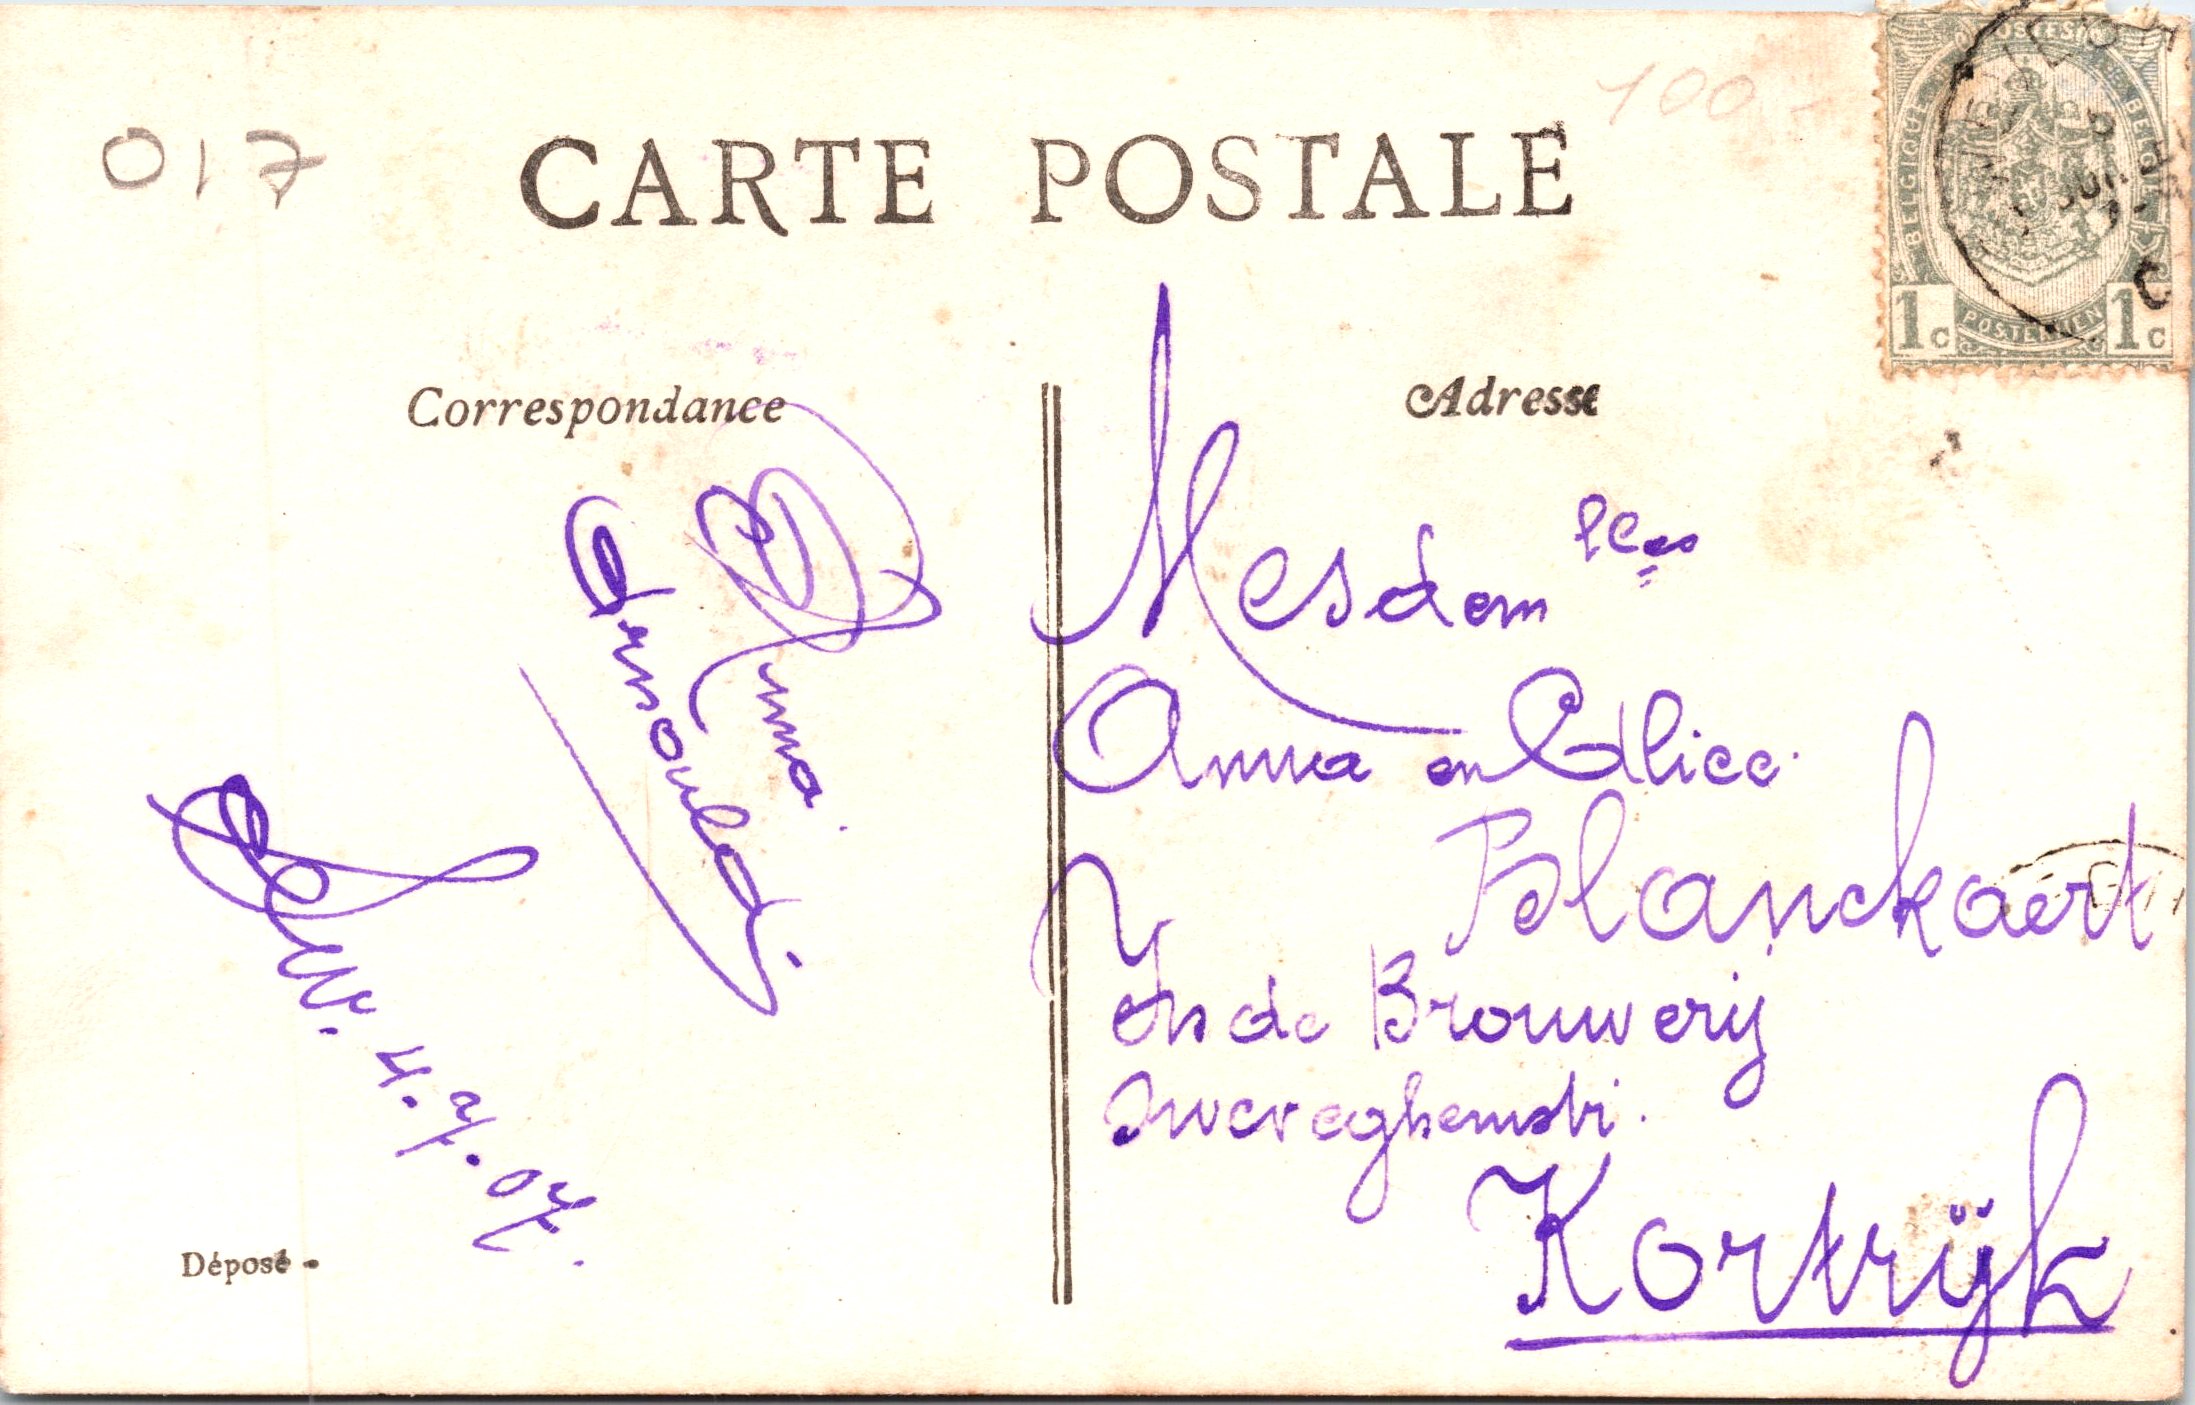 017
CARTE POSTALE
100,-
BELGIQUE
BELGIQUE
POSTERIJEN
1c 1c
Correspondance
Adresse
Mesdem lles
Anna en Alice
Blanckaert
In de Brouwerij
Sweveghemstr.
Kortrijk
Arnould
4.7.07.
Déposé -